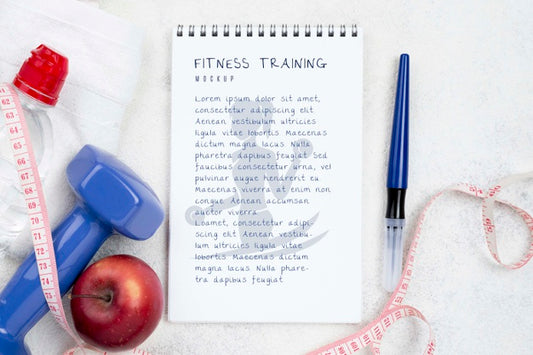 FITNESS TRAINING
MOCKUP
Lorem ipsum dolor sit amet,
consectetur adipiscing elit
Aenean vestibulum ultricies
ligula vitae lobortis. Maecenas
dictum magna lacus. Nulla
pharetra dapibus feugiat. Sed
faucibus consectetur urna, vel
pulvinar augue hendrerit eu
Maecenas viverra at enim non
congue Aenean accumsan
auctor viverra
Loamet, consectetur adipi-
scing elit Aenean vestibu-
lum ultricies ligula vitae
lobortis Maecenas dictum
magna lacus Nulla phare-
tra dapibus feugiat